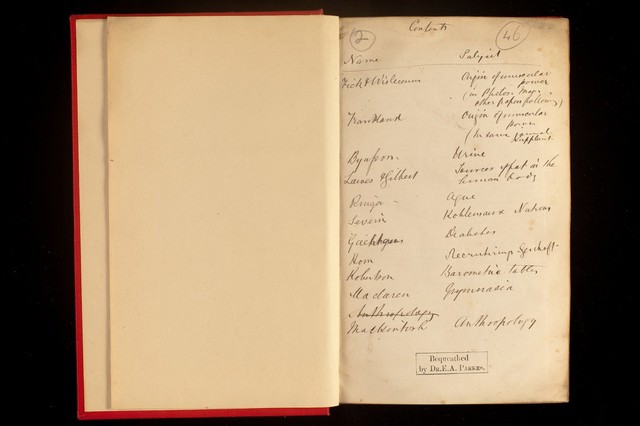 2 Contents 46
Name Subject
Fick & Wislicenus Origin of muscular
power
(in Philos. Mag. &
other papers following)
Frankland Origin of muscular
power
(In same
Supplement
Urine
Lawes & Gilbert Sources of fat in the
human body
Ague
Severin
Diabetes
Horn Recruitirungs
Robertson Barometric tables
Maclaren Gymnasia
Anthropology
Mackintosh Anthropology
Bequeathed
by Dr. E. A. Parkes.